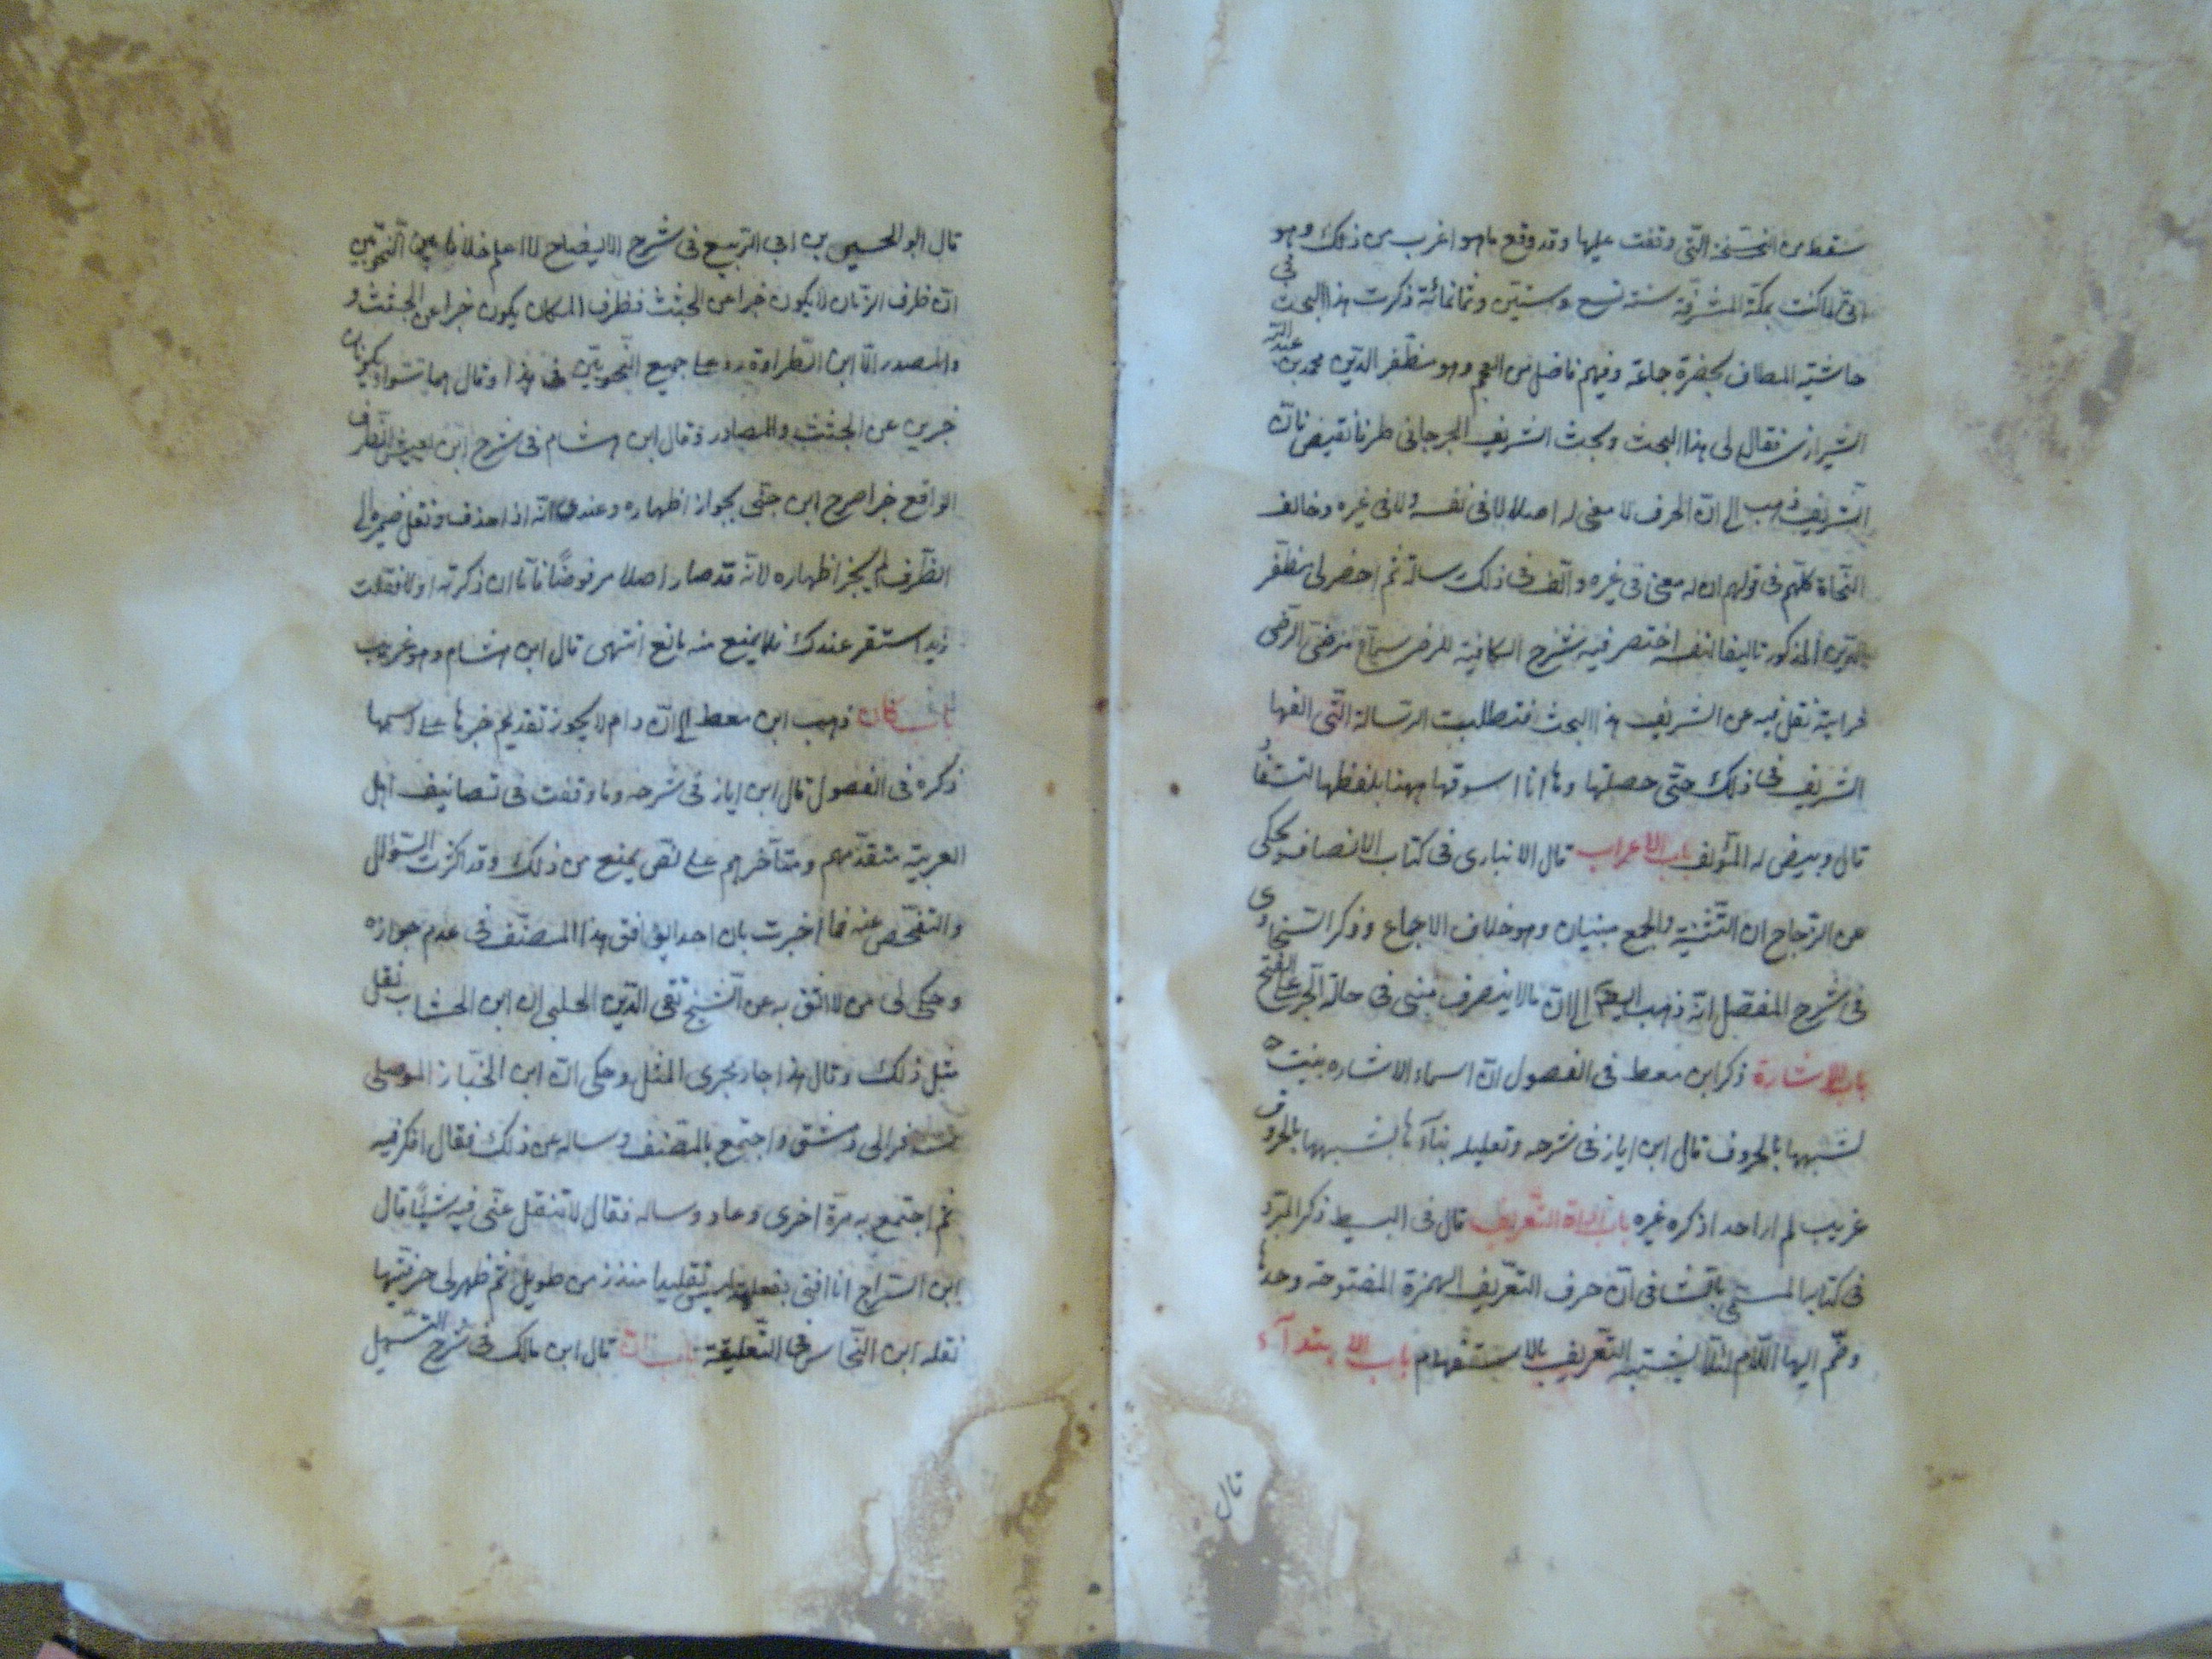 سقط من النسخة التي وقفت عليها وقد وقع ما هو اغرب من ذلك وهو
انى لما كنت بمكة المشرفة سنة تسع وستين وثمانمائة ذكرت هذا البحث فى
حاشية المطاف بحضرة جماعة وفيهم فاضل من العجم وهو مظفر الدين محمد بن عبد الله
الشيرازى فقال لى هذا البحث وبحث الشريف الجرجانى طرفا نقيض فان
الشريف ذهب الى ان الحرف لا معنى له اصلا لا فى نفسه ولا فى غيره وخالف
النحاة كلهم فى قولهم ان له معنى فى غيره والف فى ذلك رسالة ثم احضر لى مظفر
الدين المذكور تاليفا لنفسه اختصر فيه شرح الكافية للرضى سماه مرضى الرضى
فرايته نقل فيه عن الشريف هذا البحث فتطلبت الرسالة التى الفها
الشريف فى ذلك حتى حصلتها وها انا اسوقها ههنا بلفظها لتستفاد
قال وبيض له المؤلف باب الاعراب قال الانبارى فى كتاب الانصاف وحكى
عن الزجاج ان التثنية والجمع مبنيان وهو خلاف الاجماع وذكر السخاوى
فى شرح المفصل انه ذهب الى ان ما لا ينصرف مبنى فى حالة الجر على الفتح
باب الاشارة ذكر ابن معط فى الفصول ان اسماء الاشاره بنيت
لشبهها بالحروف قال ابن اياز فى شرحه وتعليله بناءها بشبهها بالحروف
غريب لم ار احدا ذكره غيره باب اداة التعريف قال فى البسيط ذكر المبرد
فى كتابه المسمى بالشافى ان حرف التعريف الهمزة المفتوحة وحدها
وضم اليها اللام لئلا يشتبه التعريف بالاستفهام باب الابتداء
قال
قال ابو الحسين بن ابى الربيع فى شرح الايضاح لا اعلم خلافا بين النحويين
ان ظرف الزمان لا يكون خبرا عن الجثث فظرف المكان يكون خبرا عن الجثث و
والمصدر الا ابن الطراوة رد على جميع النحويين فى هذا وقال هما سواء يكونان
خبرين عن الجثث والمصادر وقال ابن هشام فى شرح ابن يعيش الظرف
الواقع خبرا صرح ابن جنى بجواز اظهاره وعندى انه اذا حذف ونقل ضميره الى
الظرف لم يجز اظهاره لانه قد صار اصلا مرفوضا فاما ان ذكرته اولا فقلت
زيد استقر عندك فلا يمنع منه مانع انتهى قال ابن هشام وهو غريب
باب كان ذهب ابن معط الى ان دام لا يجوز تقديم خبرها على اسمها
ذكره فى الفصول قال ابن اياز فى شرحه وما وقفت فى تصانيف اهل
العربية متقدمهم ومتأخرهم على نص يمنع من ذلك وقد اكثرت السؤال
والتفحص عنه فما اخبرت بان احدا يوافق هذا المصنف فى عدم جوازه
وحكى لى من لا اثق به عن الشيخ تقى الدين الحلبى ان ابن الخشاب نقل
مثل ذلك وقال هذا جار مجرى المثل وحكى ان ابن الخباز الموصلى
سافر الى دمشق واجتمع بالمصنف وساله عن ذلك فقال افكر فيه
ثم اجتمع به مرة اخرى وعاد وساله فقال لا تنقل عنى فيه شيئا قال
ابن السراج انا افتى بفعلية ليس تقليدا منذ زمن طويل ثم ظهر لى حرفيتها
نقله ابن النحاس فى التعليقة باب ان قال ابن مالك فى شرح التسهيل